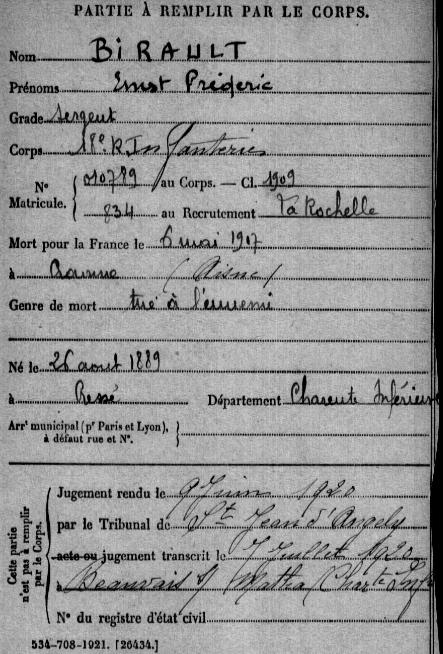 PARTIE À REMPLIR PAR LE CORPS.
Nom BIRAULT
Prénoms Ernst Préderic
Grade Sergent
Corps 18e R Infanterie
N° Matricule. { 010789 au Corps. — Cl. 1909
834 au Recrutement La Rochelle
Mort pour la France le 6 mai 1917
à Craonne (Aisne)
Genre de mort tué à l'ennemi
Né le 26 aout 1889
à Ressé Département Charente Inférieure
Arrt municipal (pr Paris et Lyon), à défaut rue et N°. }
Cette partie n'est pas à remplir par le Corps.
Jugement rendu le 9 Juin 1920
par le Tribunal de St Jean d'Angely
acte ou jugement transcrit le 7 Juillet 1920
à Beauvais s/ Matha (Charte Infre
N° du registre d'état civil
534-708-1921. [26434.]